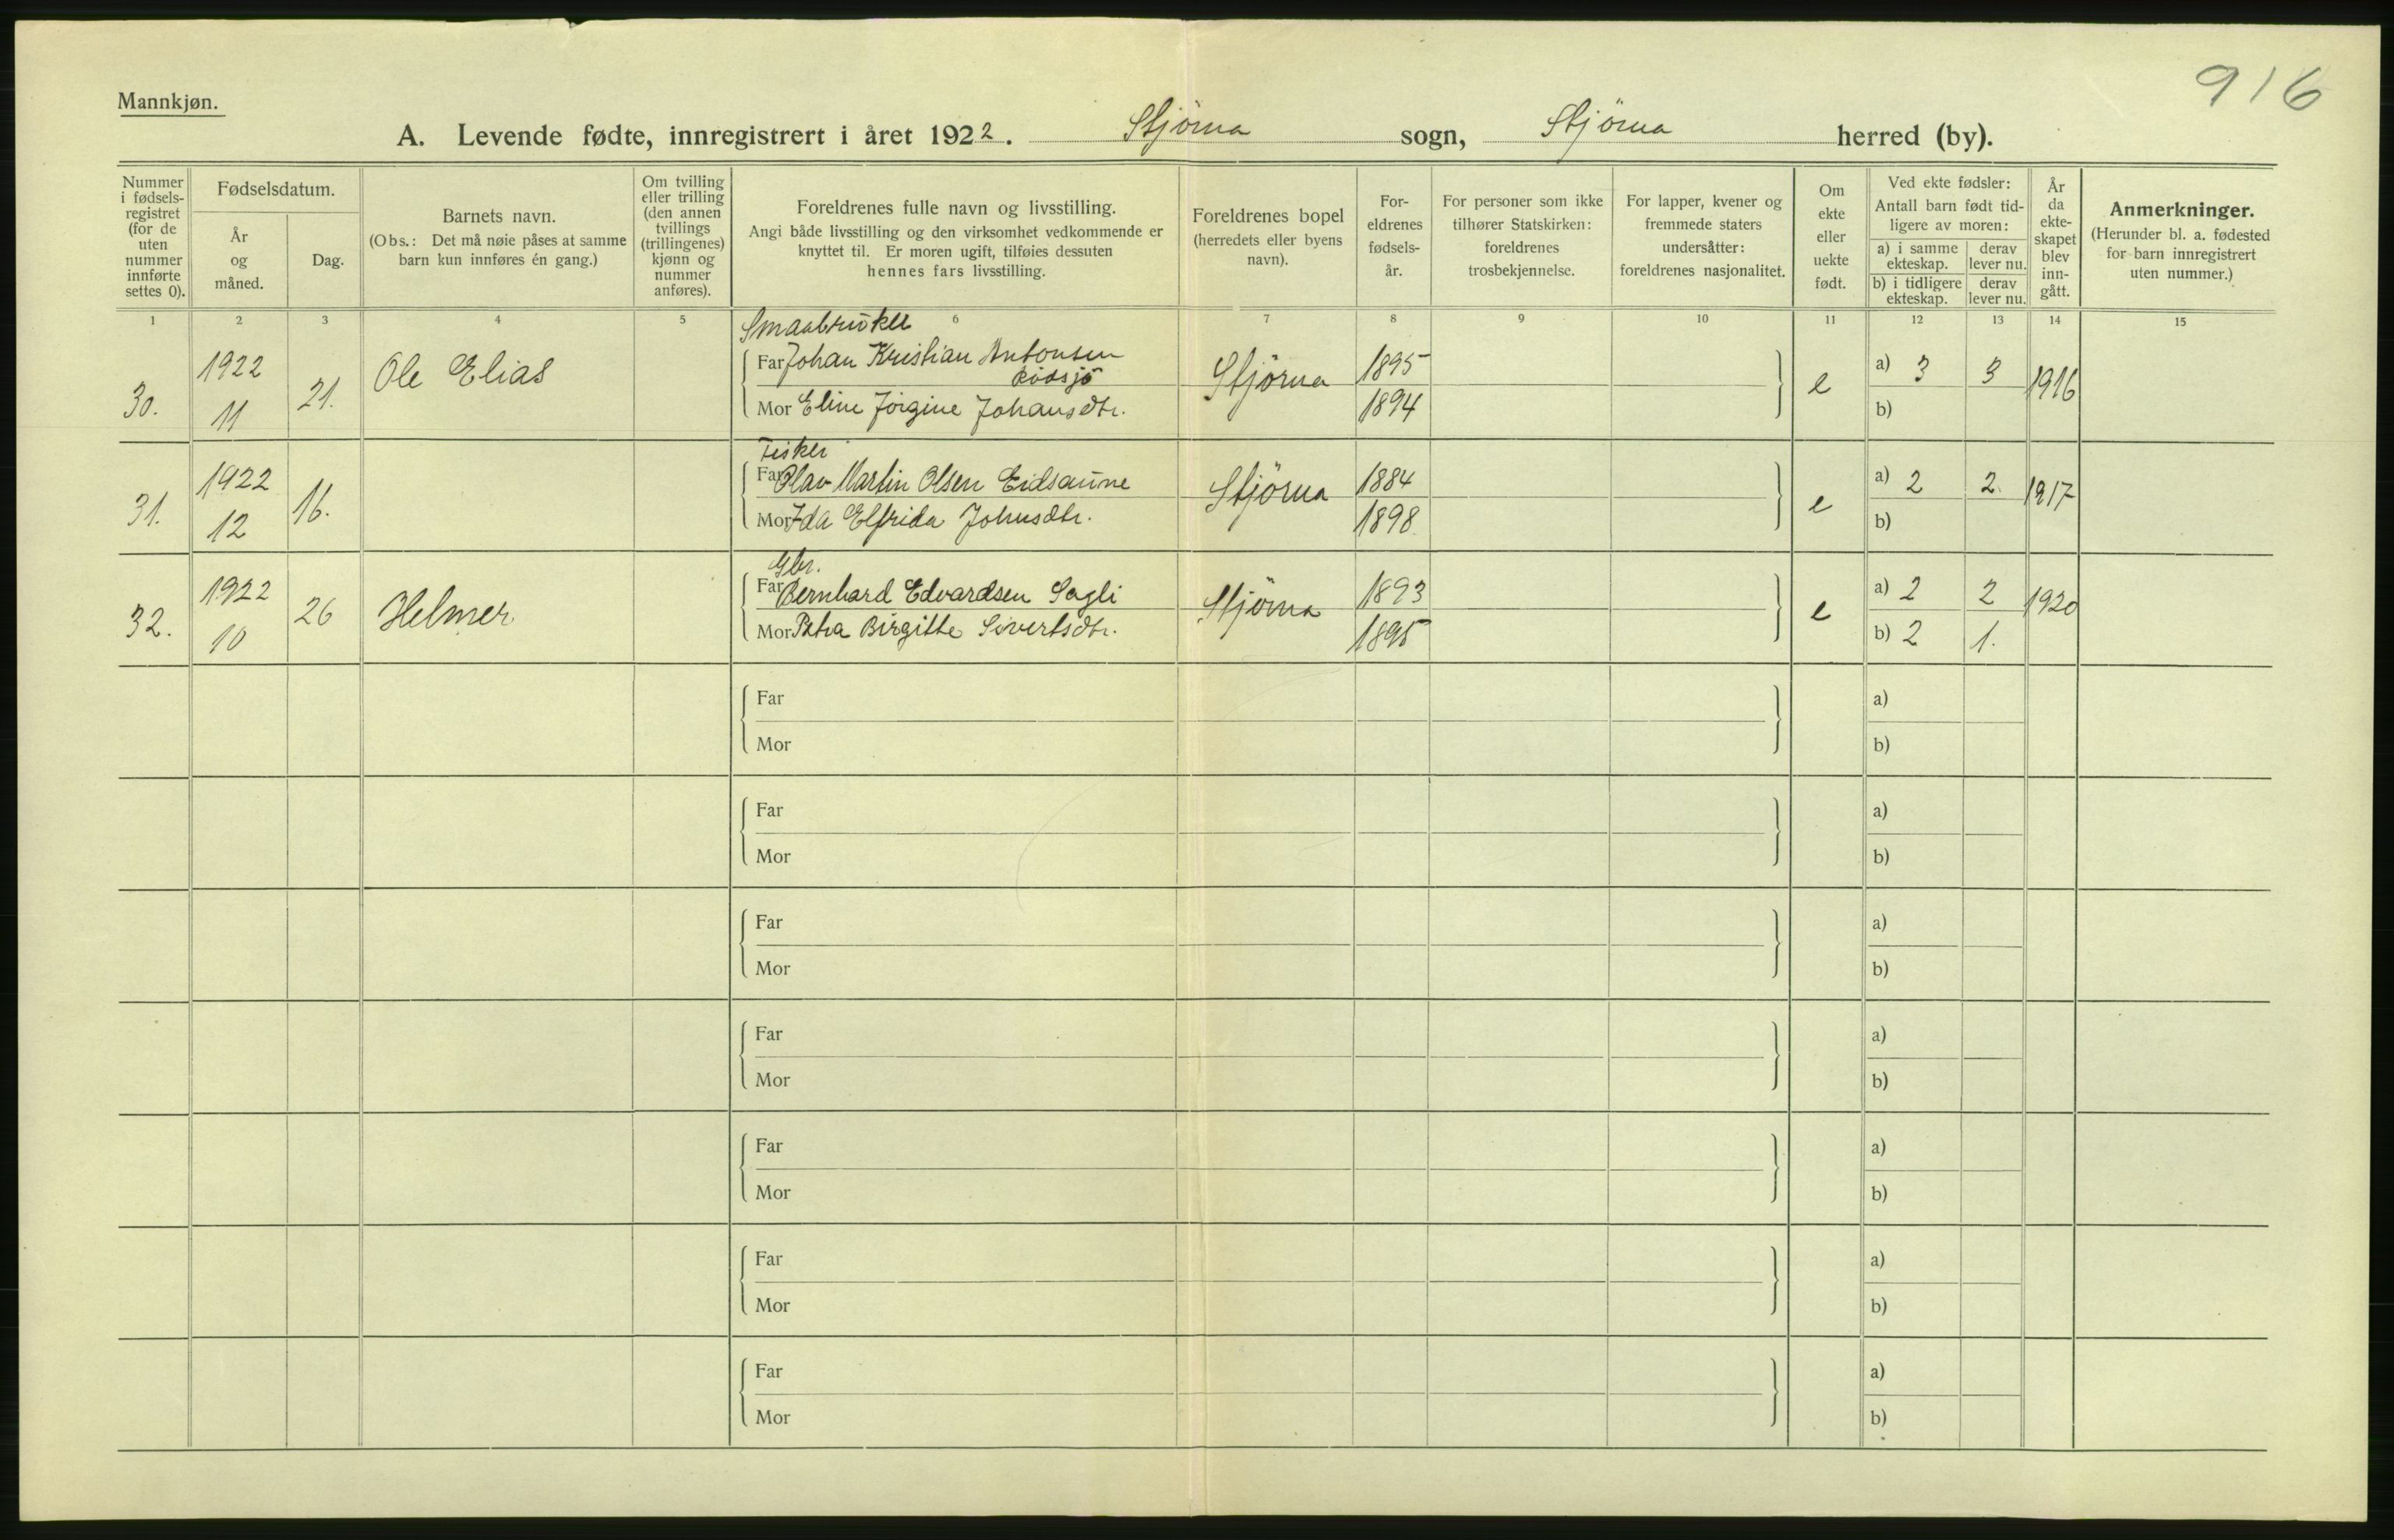 916
Mannkjøn.
A. Levende fødte, innregistrert i året 1922. Stjörna sogn, Stjörna herred (by).
Nummer i fødsels-registret (for de uten nummer innførte settes 0).
Fødselsdatum.
År og måned.
Dag.
Barnets navn.
(Obs.: Det må nøie påses at samme barn kun innføres én gang.)
Om tvilling eller trilling (den annen tvillings (trillingenes) kjønn og nummer anføres).
Foreldrenes fulle navn og livsstilling.
Angi både livsstilling og den virksomhet vedkommende er knyttet til. Er moren ugift, tilføies dessuten hennes fars livsstilling.
Foreldrenes bopel (herredets eller byens navn).
For-eldrenes fødsels-år.
For personer som ikke tilhører Statskirken: foreldrenes trosbekjennelse.
For lapper, kvener og fremmede staters undersåtter: foreldrenes nasjonalitet.
Om ekte eller uekte født.
Ved ekte fødsler: Antall barn født tid-ligere av moren:
a) i samme ekteskap.
derav lever nu.
b) i tidligere ekteskap.
derav lever nu.
År da ekte-skapet blev inn-gått.
Anmerkninger.
(Herunder bl. a. fødested for barn innregistrert uten nummer.)
1 2 3 4 5 6 7 8 9 10 11 12 13 14 15
Smaabruker
30. 1922 11 21. Ole Elias
Far Johan Kristian Antonsen Rödsjö
Mor Eline Jörgine Johansdtr.
Stjörna 1895 1894 e a) 3 3 b) 1916
Fisker
31. 1922 12 16.
Far Olav Martin Olsen Eidsaune
Mor Ida Elfrida Johnsdtr.
Stjörna 1884 1898 e a) 2 2. b) 1917
Gbr.
32. 1922 10 26 Helmer
Far Bernhard Edvardsen Sagli
Mor Petra Birgitte Sivertsdtr.
Stjörna 1893 1895 e a) 2 2 b) 2 1. 1920
Far a)
Mor b)
Far a)
Mor b)
Far a)
Mor b)
Far a)
Mor b)
Far a)
Mor b)
Far a)
Mor b)
Far a)
Mor b)